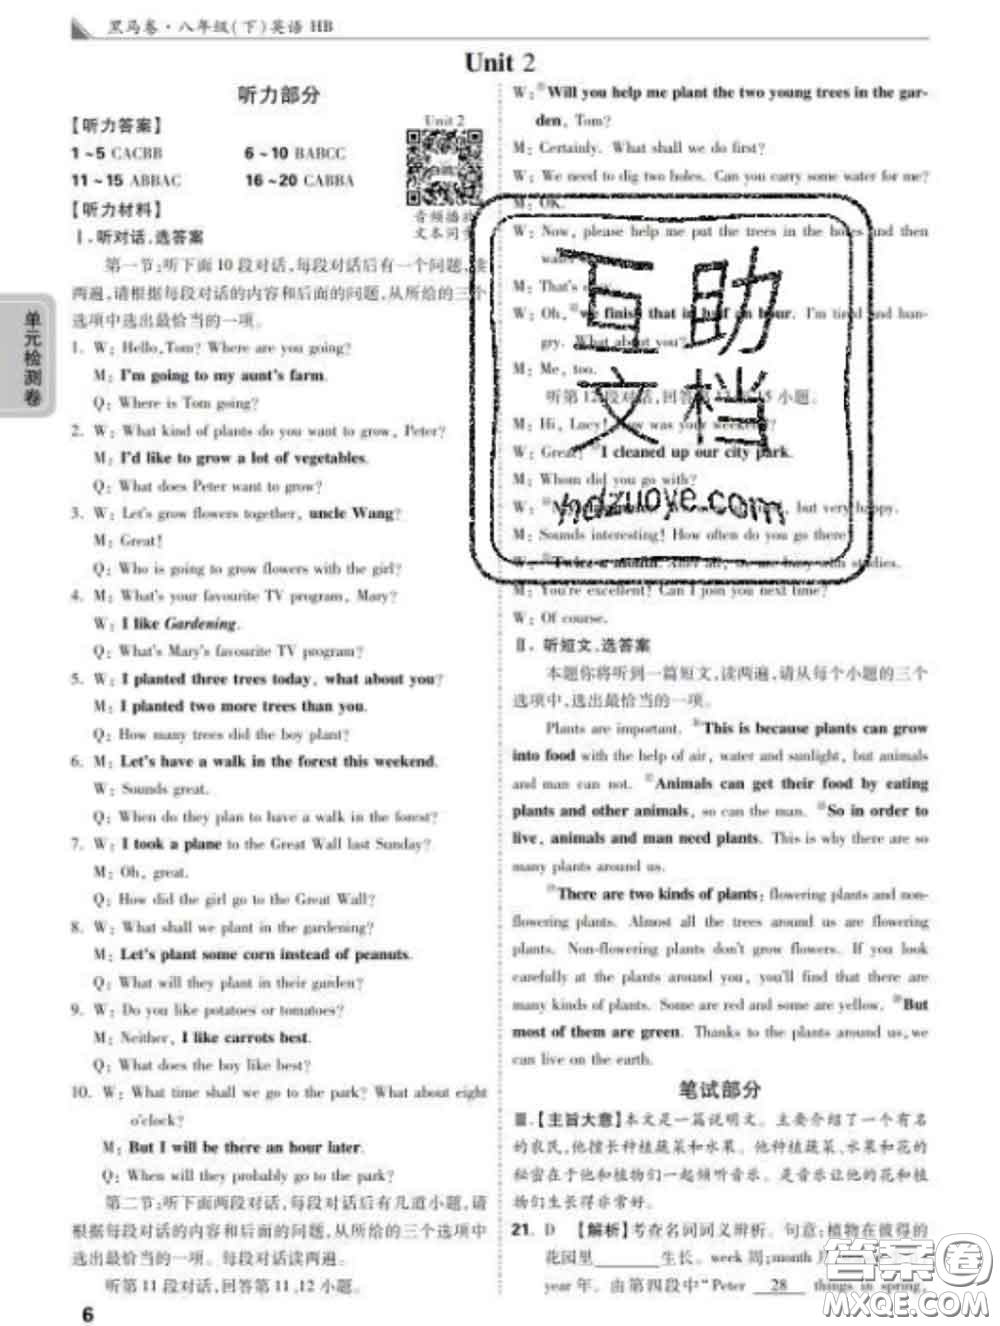 黑马卷·八年级(下)英语 HB
Unit 2
听力部分
【听力答案】
1~5 CACBB 6~10 BABCC
11~15 ABBAC 16~20 CABBA
Unit 2
音频播放
文本同步
【听力材料】
Ⅰ.听对话,选答案
第一节:听下面10段对话,每段对话后有一个问题,读
两遍,请根据每段对话的内容和后面的问题,从所给的三个
选项中选出最恰当的一项。
1. W: Hello,Tom? Where are you going?
M: I'm going to my aunt's farm.
Q: Where is Tom going?
2. W: What kind of plants do you want to grow, Peter?
M: I'd like to grow a lot of vegetables.
Q: What does Peter want to grow?
3. W: Let's grow flowers together, uncle Wang?
M: Great!
Q: Who is going to grow flowers with the girl?
4. M: What's your favourite TV program, Mary?
W: I like Gardening.
Q: What's Mary's favourite TV program?
5. W: I planted three trees today, what about you?
M: I planted two more trees than you.
Q: How many trees did the boy plant?
6. M: Let's have a walk in the forest this weekend.
W: Sounds great.
Q: When do they plan to have a walk in the forest?
7. W: I took a plane to the Great Wall last Sunday?
M: Oh, great.
Q: How did the girl go to the Great Wall?
8. W: What shall we plant in the gardening?
M: Let's plant some corn instead of peanuts.
Q: What will they plant in their garden?
9. W: Do you like potatoes or tomatoes?
M: Neither, I like carrots best.
Q: What does the boy like best?
10. W: What time shall we go to the park? What about eight
o'clock?
M: But I will be there an hour later.
Q: When will they probably go to the park?
第二节:听下面两段对话,每段对话后有几道小题,请
根据每段对话的内容和后面的问题,从所给的三个选项中
选出最恰当的一项。每段对话读两遍。
听第11段对话,回答第11、12小题。
W: Will you help me plant the two young trees in the gar-
den, Tom?
M: Certainly. What shall we do first?
W: We need to dig two holes. Can you carry some water for me?
M: OK.
W: Now, please help me put the trees in the holes and then
M: That's
W: Oh, we finish that in half an hour. I'm tired and hun-
gry. What about you?
M: Me, too.
听第12段对话,回答第13至15小题。
M: Hi, Lucy! How was your weekend?
W: Great! I cleaned up our city park.
M: Whom did you go with?
W: but very happy.
M: Sounds interesting! How often do you go there
W: Twice a month. After all, we are busy with studies.
M: You're excellent! Can I join you next time?
W: Of course.
Ⅱ.听短文,选答案
本题你将听到一篇短文,读两遍,请从每个小题的三个
选项中,选出最恰当的一项。
Plants are important. This is because plants can grow
into food with the help of air, water and sunlight, but animals
and man can not. Animals can get their food by eating
plants and other animals, so can the man. So in order to
live, animals and man need plants. This is why there are so
many plants around us.
There are two kinds of plants: flowering plants and non-
flowering plants. Almost all the trees around us are flowering
plants. Non-flowering plants don't grow flowers. If you look
carefully at the plants around you, you'll find that there are
many kinds of plants. Some are red and some are yellow. But
most of them are green. Thanks to the plants around us, we
can live on the earth.
笔试部分
Ⅲ.【主旨大意】本文是一篇说明文。主要介绍了一个有名
的农民,他擅长种植蔬菜和水果。他种植蔬菜、水果和花的
秘密在于他和植物们一起倾听音乐。是音乐让他的花和植
物们生长得非常好。
21. D 【解析】考查名词词义辨析。句意:植物在彼得的
花园里______生长。week 周;month 月
year 年。由第四段中“Peter 28 things in spring,
单元检测卷
6
互助
文档
hdzuoye.com
答案卷
MXQE.COM